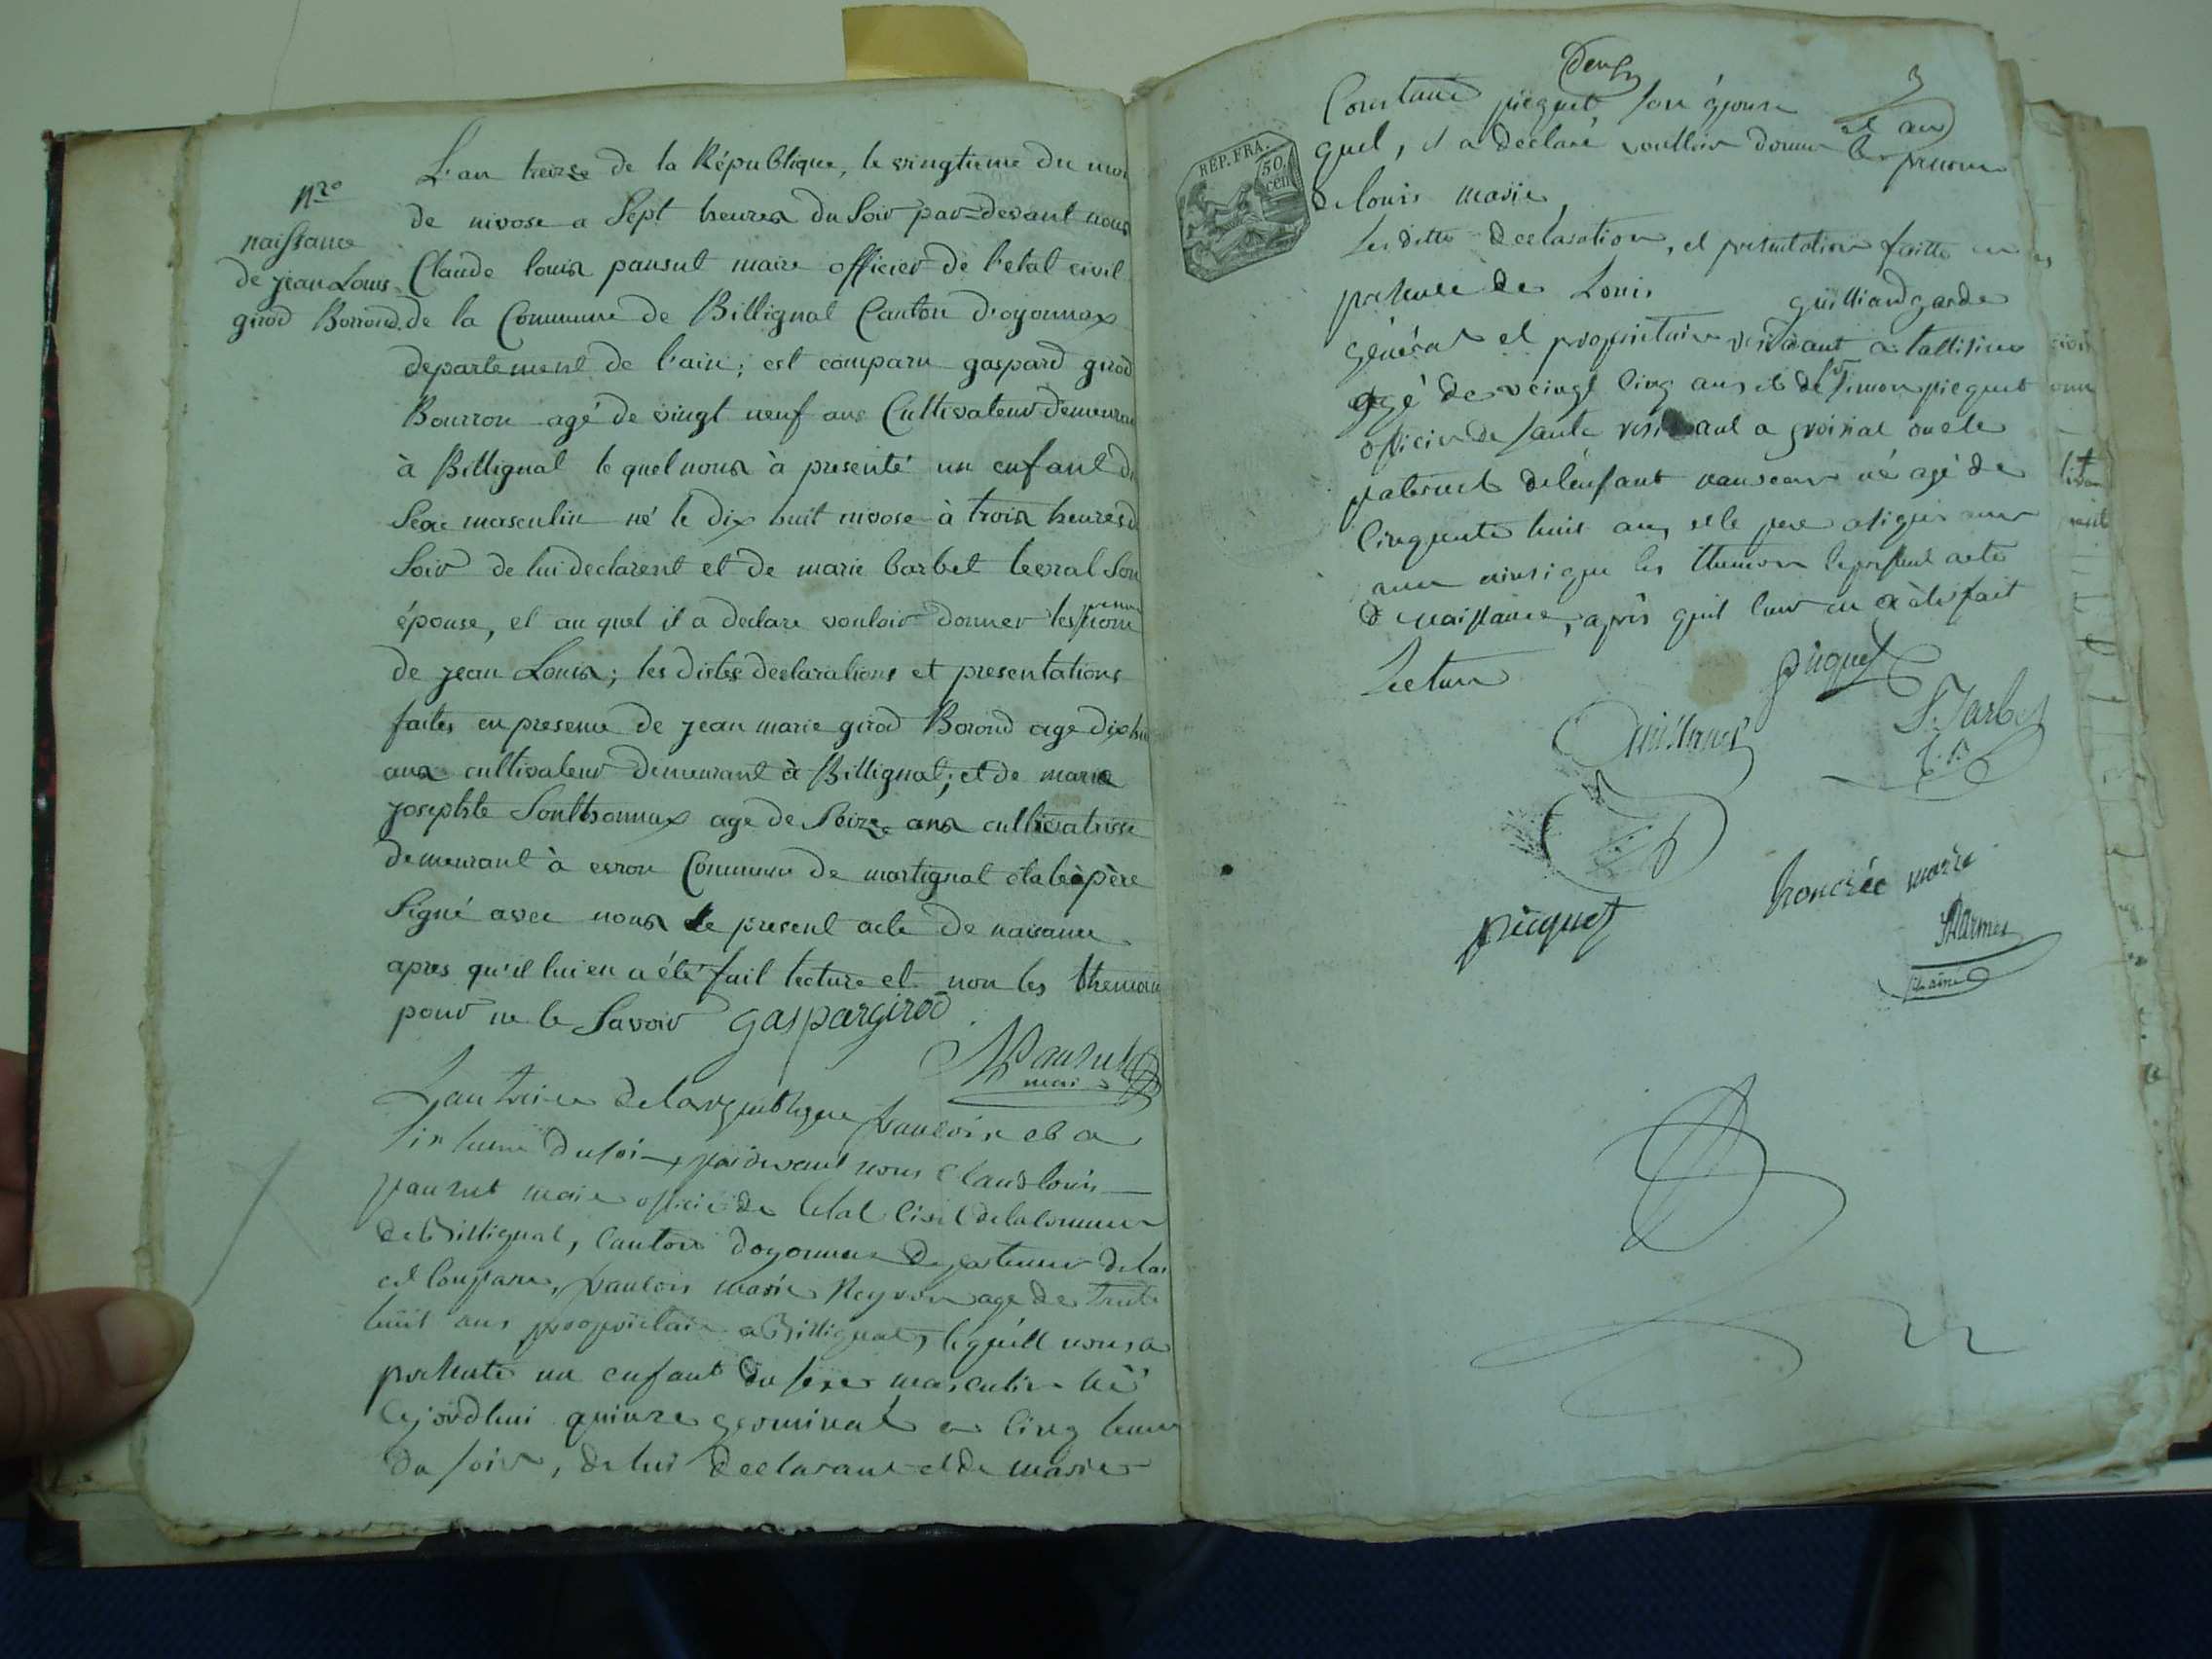 nro
naissance
de jean Louis
girod Borrond.
L'an treize de la République, le vingtieme du moi
de nivose a Sept heures du Soir par-devant nous
Claude louis pansut maire officier de l'etat civil
de la Commune de Billignat Canton d'oyonnax
departement de l'ain; est comparu gaspard girod
Bourron agé de vingt neuf ans Cultivateur demeuran
à Billignat le quel nous à presenté un enfant d
Sexe masculin né le dix huit nivose à trois heures d
Soir de lui declarent et de marie barbet levral Son
épouse, et au quel il a declare vouloir donner les prenom
de jean Louis; les distes declarations et presentations
faites en presence de jean marie girod Borond age dix hu
ans cultivateur demeurant à Billignat; et de marie
josephte Sonthonnax age de Seize ans cultivatrisse
demeurant à evron Commune de martignat et a le père
Signé avec nous le present acte de naisance
apres qu'il lui en a été fait lecture et non les themoin
pour ne le Savoir gaspargirod
Pansut
maire
L'an treize de la republique francoise et a
six heure du soir pardevant nous Claud louis
pansut maire officié de letat Civil de la commune
de Billignat, Canton doyonnax departement de lai
est Comparu, francois marie Reyron age de trente
huit ans propriétaire a Billignat, lequell nous a
presenté un enfant du sexe masculin né
cejourdhui quinze germinal a cinq heure
du soir, de lui declarant et de marie
deux
3
Constance picquet son épouse et au
quel, il a declaré voulloir donner les prenom
de louis marie,
Les ditte declaration, et presentation faitte en
presence de Louis guilliard garde
général et proprietaire residant a tallisieu
agé de veingt cinq ans et de sr simon picquet
officier de santé residant a groisiat oncle
paternel de lenfant nauveau né agé de
Cinquante huit ans, et le pere a signer avec
nous ainsi que les themoin le present acte
de naissance, après quil leur en a été fait
Lecture
REP. FRA.
50
cen
picquet
picquet
honorée marie